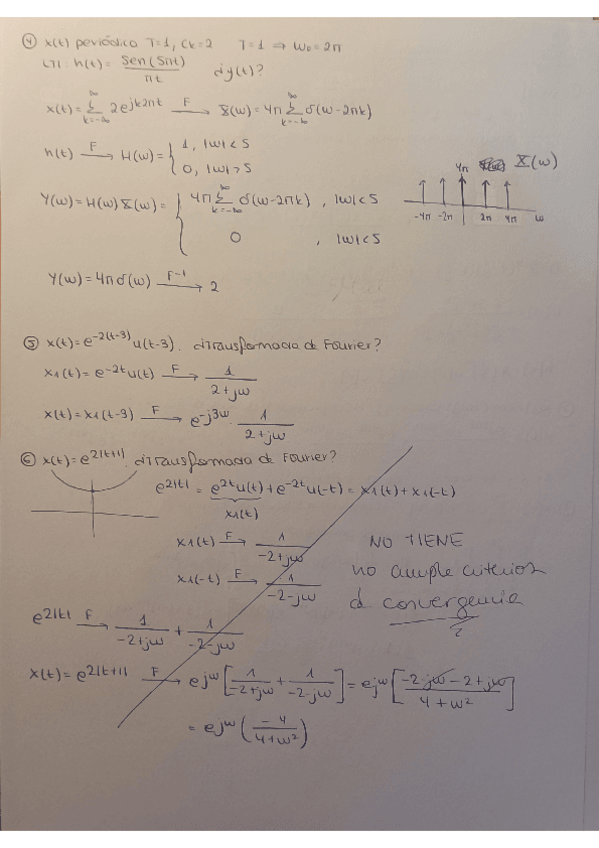 ④ x(t) periódico T=1, Ck=2 T=1 ⇒ W₀=2π
LTI: h(t) = Sen(5πt)/πt ¿y(t)?
x(t) = ∑_{k=-∞}^{∞} 2e^{jk2πt} —F→ X(w) = 4π ∑_{k=-∞}^{∞} δ(w-2πk)
h(t) —F→ H(w) = { 1, |w|<5
0, |w|>5
4π X(w)
-4π -2π 2π 4π w
Y(w) = H(w) X(w) = { 4π ∑_{k=-∞}^{∞} δ(w-2πk), |w|<5
0, |w|<5
Y(w) = 4πδ(w) —F⁻¹→ 2
⑤ x(t) = e^{-2(t-3)} u(t-3). ¿Transformada de Fourier?
x₁(t) = e^{-2t} u(t) —F→ 1/(2+jw)
x(t) = x₁(t-3) —F→ e^{-j3w} · 1/(2+jw)
⑥ x(t) = e^{2|t+1|}. ¿Transformada de Fourier?
e^{2|t|} = e^{2t}u(t) + e^{-2t}u(-t) = x₁(t) + x₁(-t)
x₁(t)
x₁(t) —F→ 1/(-2+jw)
x₁(-t) —F→ 1/(-2-jw)
NO TIENE
no cumple criterios
d convergencia
e^{2|t|} —F→ 1/(-2+jw) + 1/(-2-jw)
x(t) = e^{2|t+1|} —F→ e^{jw} [1/(-2+jw) + 1/(-2-jw)] = e^{jw} [(-2-jw-2+jw)/(4+w²)]
= e^{jw} (-4/(4+w²))